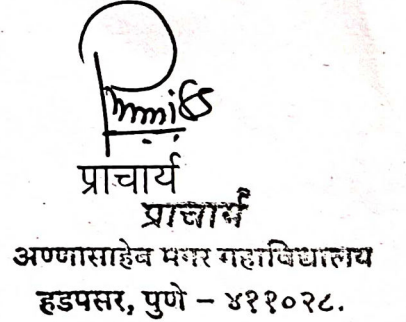 प्राचार्य
प्राचार्य
अण्णासाहेब मगर महाविद्यालय
हडपसर, पुणे – ४११०२८.